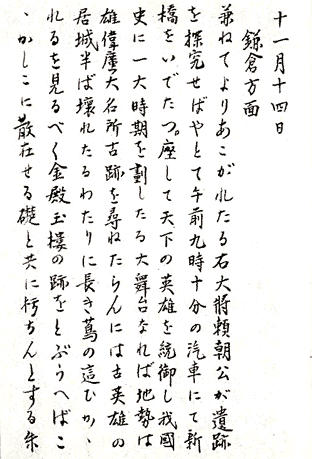 十一月十四日
鎌倉方面
兼ねてよりあこがれたる右大將頼朝公が遺跡
を探究せばやとて午前九時十分の汽車にて新
橋をいでたつ。座して天下の英雄を統御し我國
史に一大時期を劃したる大舞台なれば地勢は
雄偉廣大名所古跡を尋ねたらんには古英雄の
居城半ば壊れたるわたりに長き蔦の這むかゝ
れるを見るべく金殿玉樓の跡をとぶらへばこ
ゝかしこに散在せる礎と共に朽ちんとする朱